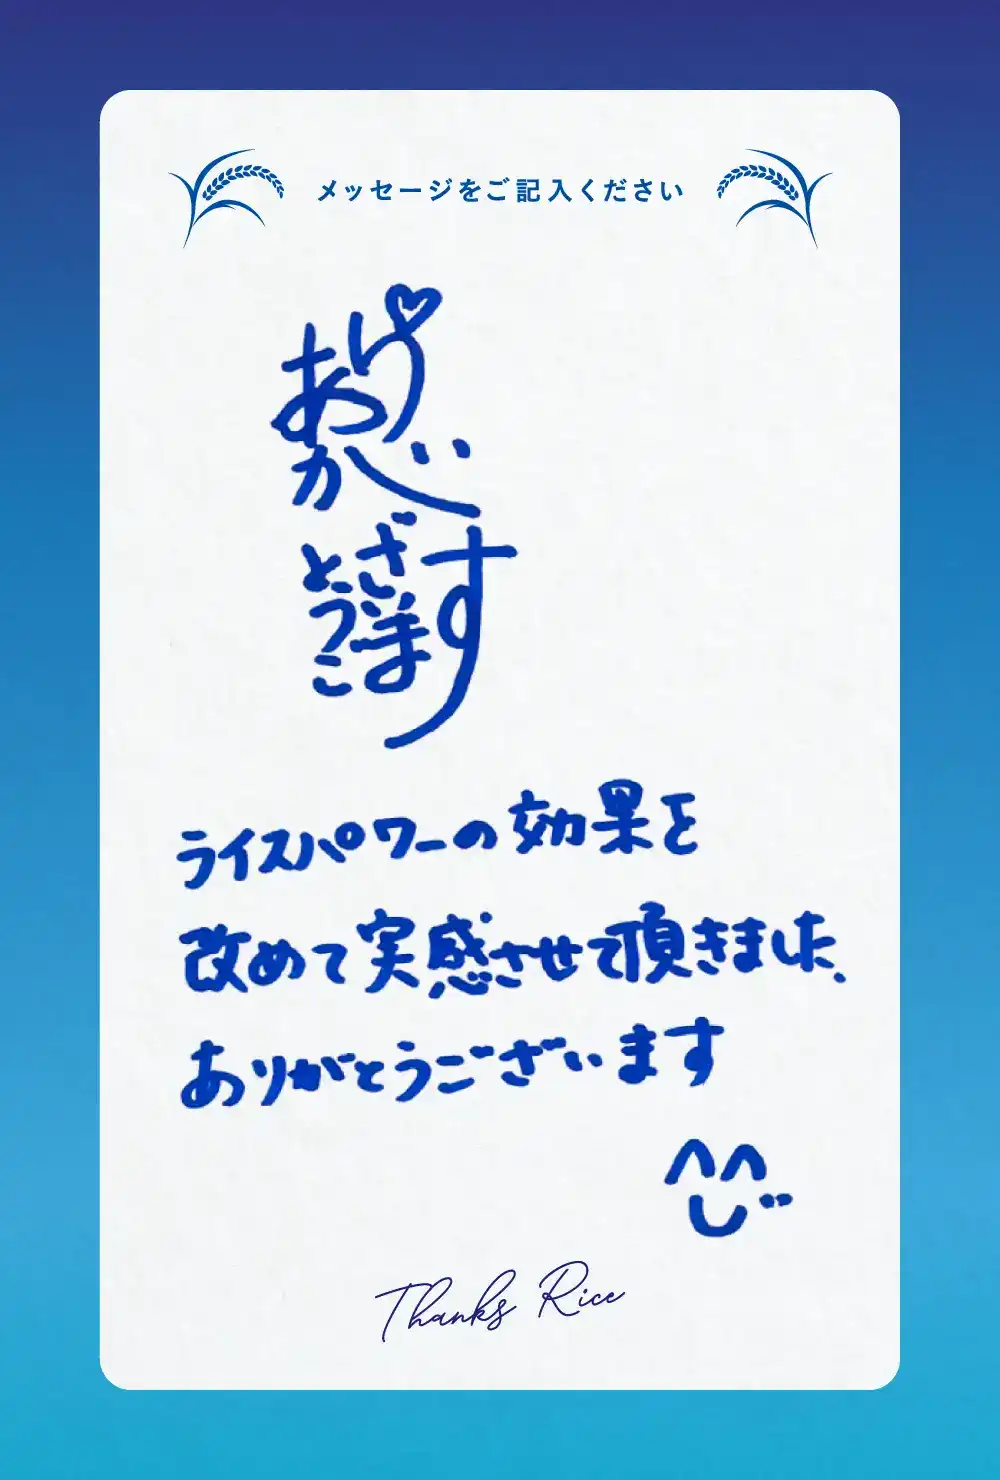 メッセージをご記入ください
ありがとうございます
ライスパワーの効果を
改めて実感させて頂きました、
ありがとうございます
Thanks Rice